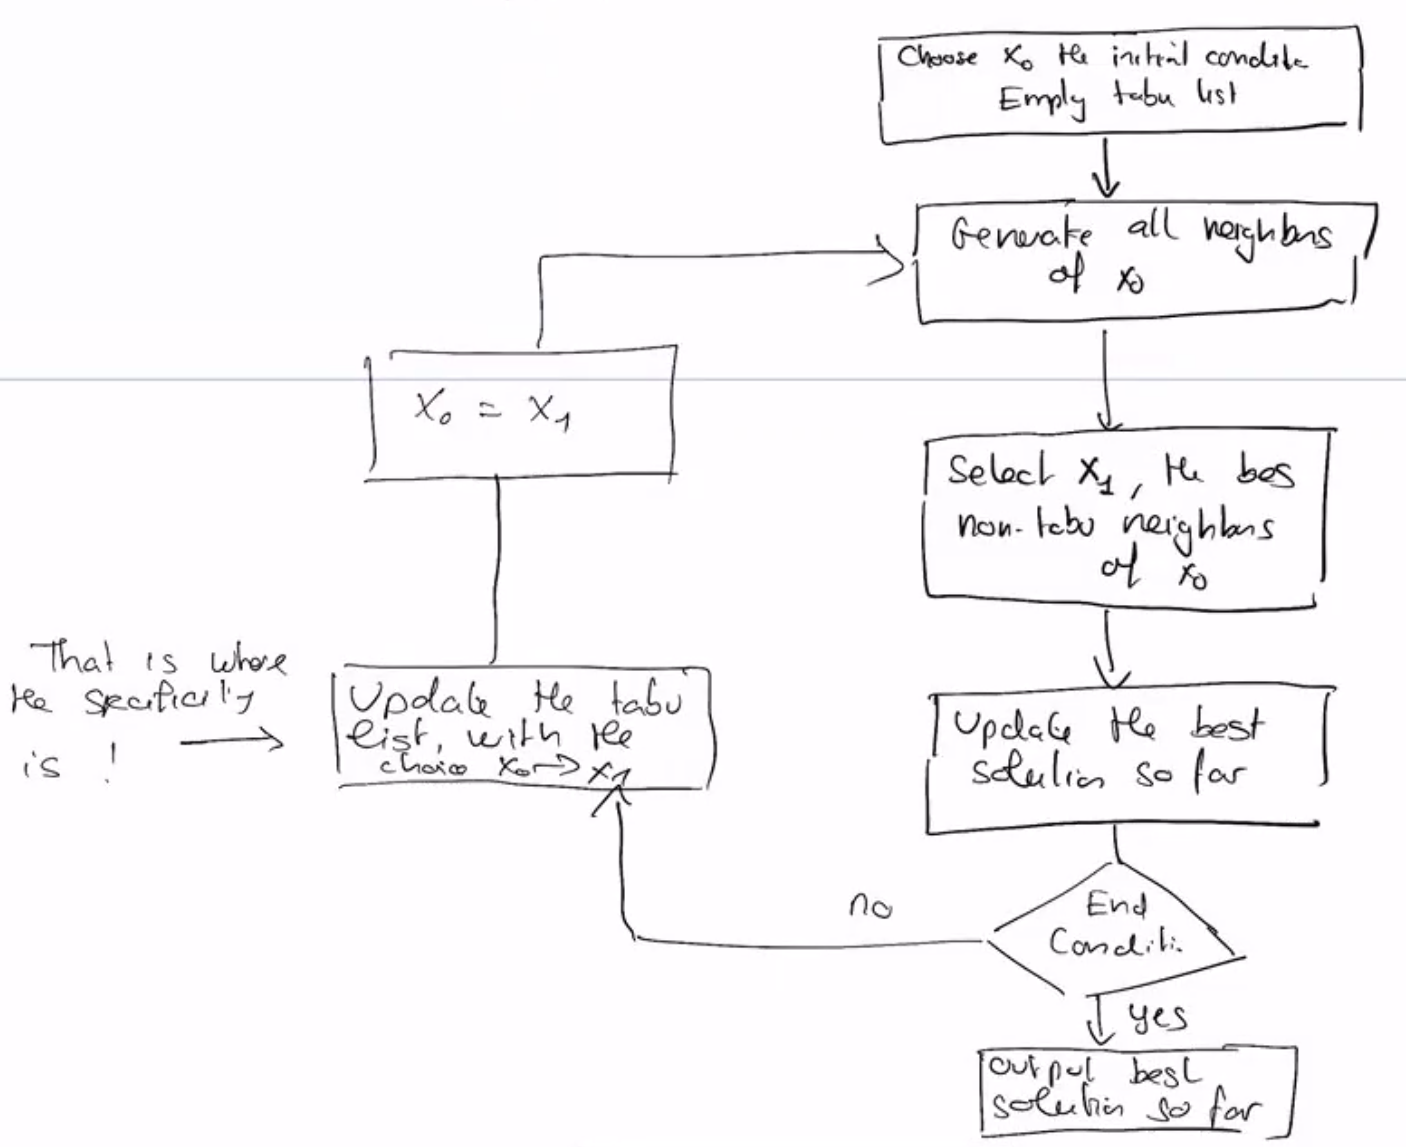 Choose x₀ the initial condit
Empty tabu list
Generate all neighbors
of x₀
Select x₁, the bes
non-tabu neighbors
of x₀
Update the best
solution so far
End
Conditi
no
yes
output best
solution so far
Update the tabu
list, with the
choice x₀→x₁
That is where
the specificity
is !
x₀ = x₁